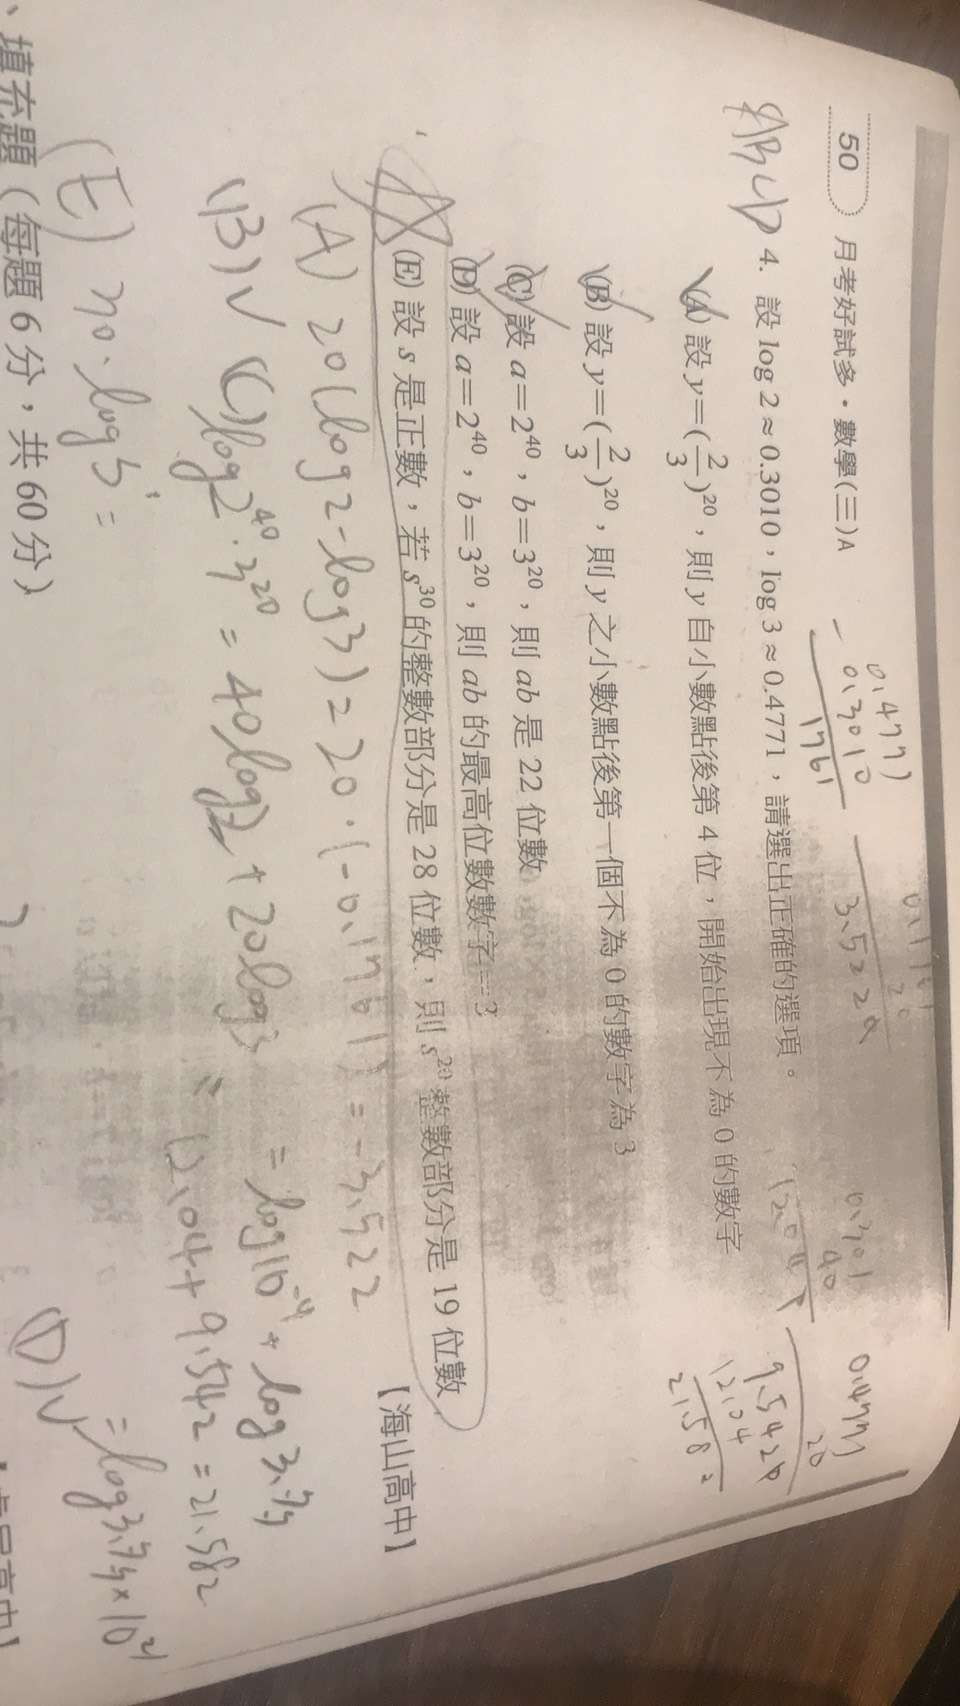 50 月考好試多・數學(三)A
0.4771
- 0.3010
1761
0.1761
20
3.522
0.301
40
12.04
0.4771
20
9.5420
12.04
21.582
4. 設 log 2≈0.3010，log 3≈0.4771，請選出正確的選項。
(A) 設 y=(2/3)^20，則 y 自小數點後第 4 位，開始出現不為 0 的數字
(B) 設 y=(2/3)^20，則 y 之小數點後第一個不為 0 的數字為 3
(C) 設 a=2^40，b=3^20，則 ab 是 22 位數
(D) 設 a=2^40，b=3^20，則 ab 的最高位數數字=3
(E) 設 s 是正數，若 s^30 的整數部分是 28 位數，則 s^20 整數部分是 19 位數
【海山高中】
(A) 20(log2-log3)=20・(-0.1761)=-3.522
=log10^-4+log3.
(B)√ (C) log2^40・3^20=40log2+20log3≒12.04+9.542=21.582
=log3. ×10^21
(D)√
(E)
、填充題（每題 6 分，共 60 分）